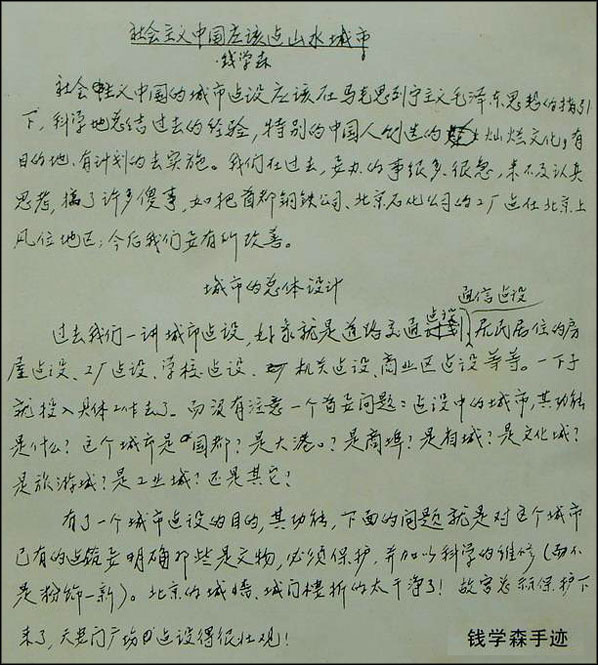 社会主义中国应该建山水城市
·钱学森
社会主义中国的城市建设应该在马克思列宁主义毛泽东思想的指引
下，科学地总结过去的经验，特别的中国人创造的灿烂文化，有
目的地、有计划的去实施。我们在过去，要办的事很多、很急，来不及认真
思考，搞了许多傻事，如把首都钢铁公司、北京石化公司的工厂建在北京上
风位地区；今后我们要有所改善。
城市的总体设计
通信建设
过去我们一讲城市建设，好象就是道路交通建设、居民居住的房
屋建设、工厂建设、学校建设、机关建设、商业区建设等等。一下子
就投入具体工作去了。而没有注意一个首要问题：建设中的城市，其功能
是什么？这个城市是国都？是大港？是商埠？是省城？是文化城？
是旅游城？是工业城？还是其它？
有了一个城市建设的目的，其功能，下面的问题就是对这个城市
已有的建筑要明确那些是文物，必须保护，并加以科学的维修（而不
是粉饰一新）。北京的城墙、城门楼拆的太干净了！故宫总算保护下
来了，天安门广场也建设得很壮观！
钱学森手迹